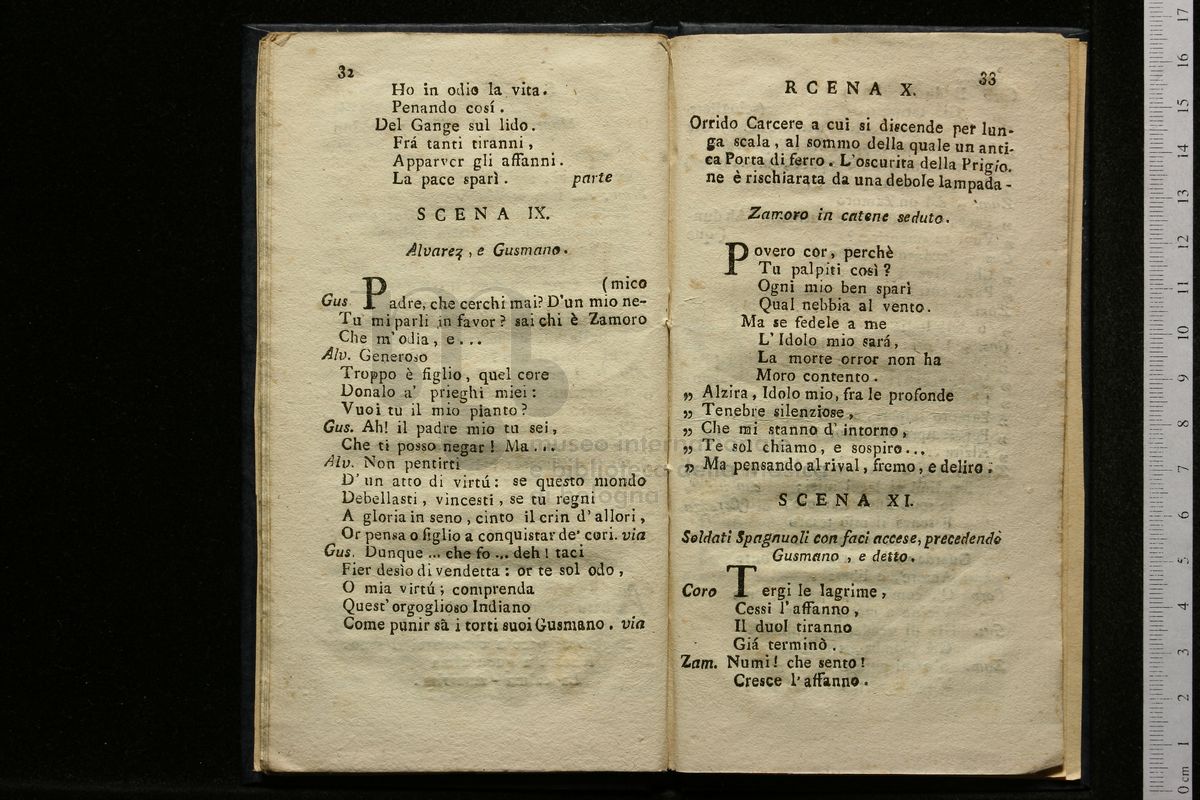 32
Ho in odio la vita.
Penando cosí.
Del Gange sul lido.
Frá tanti tiranni,
Apparver gli affanni.
La pace sparì. parte
SCENA IX.
Alvarez, e Gusmano.
(mico
Gus Padre, che cerchi mai? D'un mio ne-
Tu mi parli in favor? sai chi è Zamoro
Che m'odia, e...
Alv. Generoso
Troppo è figlio, quel core
Donalo a' prieghi miei:
Vuoi tu il mio pianto?
Gus. Ah! il padre mio tu sei,
Che ti posso negar! Ma...
Alv. Non pentirti
D'un atto di virtú: se questo mondo
Debellasti, vincesti, se tu regni
A gloria in seno, cinto il crin d'allori,
Or pensa o figlio a conquistar de' cori. via
Gus. Dunque ... che fo ... deh! taci
Fier desìo di vendetta: or te sol odo,
O mia virtú; comprenda
Quest' orgoglioso Indiano
Come punir sà i torti suoi Gusmano. via
33
RCENA X.
Orrido Carcere a cui si discende per lun-
ga scala, al sommo della quale un anti-
ca Porta di ferro. L'oscurita della Prigio.
ne è rischiarata da una debole lampada-
Zamoro in catene seduto.
Povero cor, perchè
Tu palpiti così?
Ogni mio ben sparì
Qual nebbia al vento.
Ma se fedele a me
L'Idolo mio sará,
La morte orror non ha
Moro contento.
„ Alzira, Idolo mio, fra le profonde
„ Tenebre silenziose,
„ Che mi stanno d'intorno,
„ Te sol chiamo, e sospiro...
„ Ma pensando al rival, fremo, e deliro.
SCENA XI.
Soldati Spagnuoli con faci accese, precedendo
Gusmano, e detto.
Coro Tergi le lagrime,
Cessi l'affanno,
Il duol tiranno
Giá terminò.
Zam. Numi! che sento!
Cresce l'affanno.
museo internazionale
e biblioteca della musica
di bologna
0 cm 1 2 3 4 5 6 7 8 9 10 11 12 13 14 15 16 17